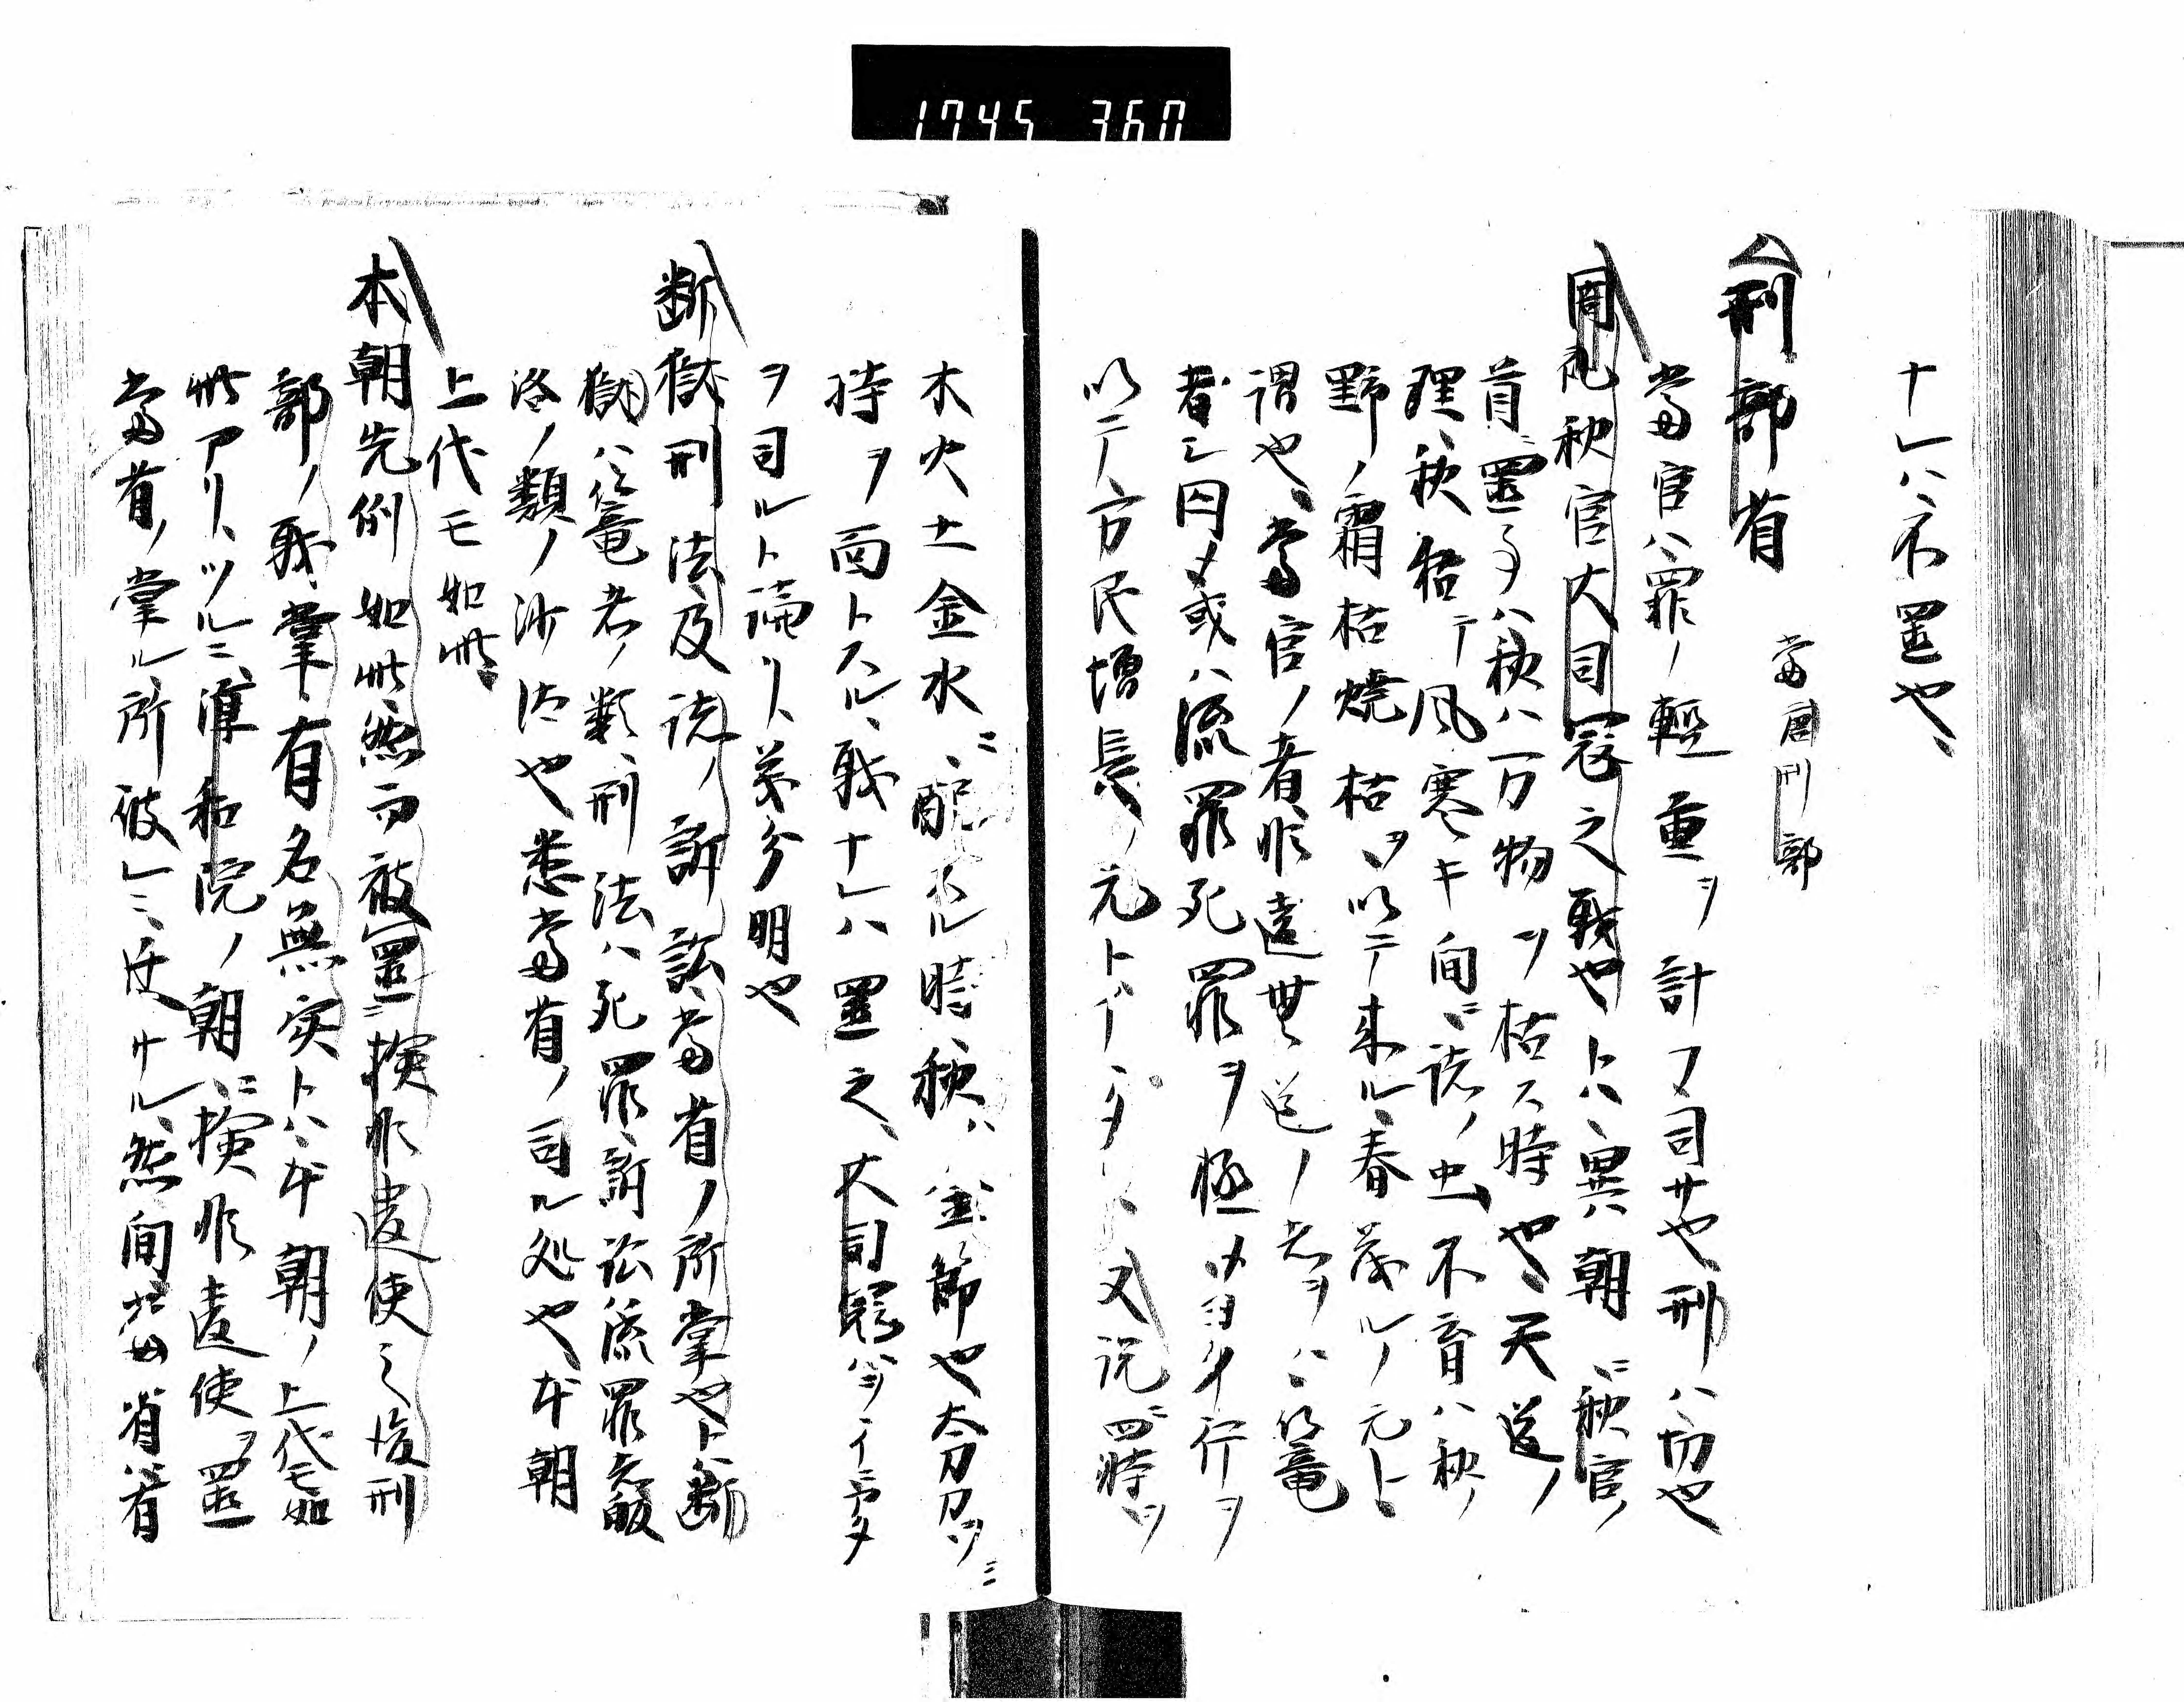 1745 360
十レハ不置也、
刑部省 當唐刑部
當官ハ罪ノ輕重ヲ計フ司サ也刑ハ切也
周礼秋官大司寇之職也トハ、異朝ニ秋官ノ
首置事ハ秋ハ万物ヲ枯ス時也、天道ノ
理、秋枯テ風寒キ間、諸ノ虫不育ハ秋ノ
野ノ霜枯焼枯ヲ以テ来ル春茂ルノ元ト
謂也、當官ノ者非違無道ノ者ヲハ篭
者シ囚メ或ハ流罪死罪ヲ極メ行ヲ
以テ、万民増長ノ元ト 又説ニ四時ヲ
木火土金水ニ配スル時、秋ハ金ノ節也太刀刀ヲ
持ヲ面トスル、職ナレハ置之、大司寇
ヲ司ルト論リ、義分明也
断獄刑法及諸ノ訴訟當省ノ所掌也トハ断
獄ハ篭者ノ類、刑法ハ死罪訴訟流罪
洛ノ類ノ沙汰也悉當省ノ司ル処也、本朝
上代モ如此、
本朝先例如此然而被置撿非違使之後刑
部ノ職掌、有名無実トハ、本朝ノ上代モ如
此アリツルニ、淳和院ノ朝ニ撿非違使ヲ置
當省ノ掌ル所彼レニ 然間 省